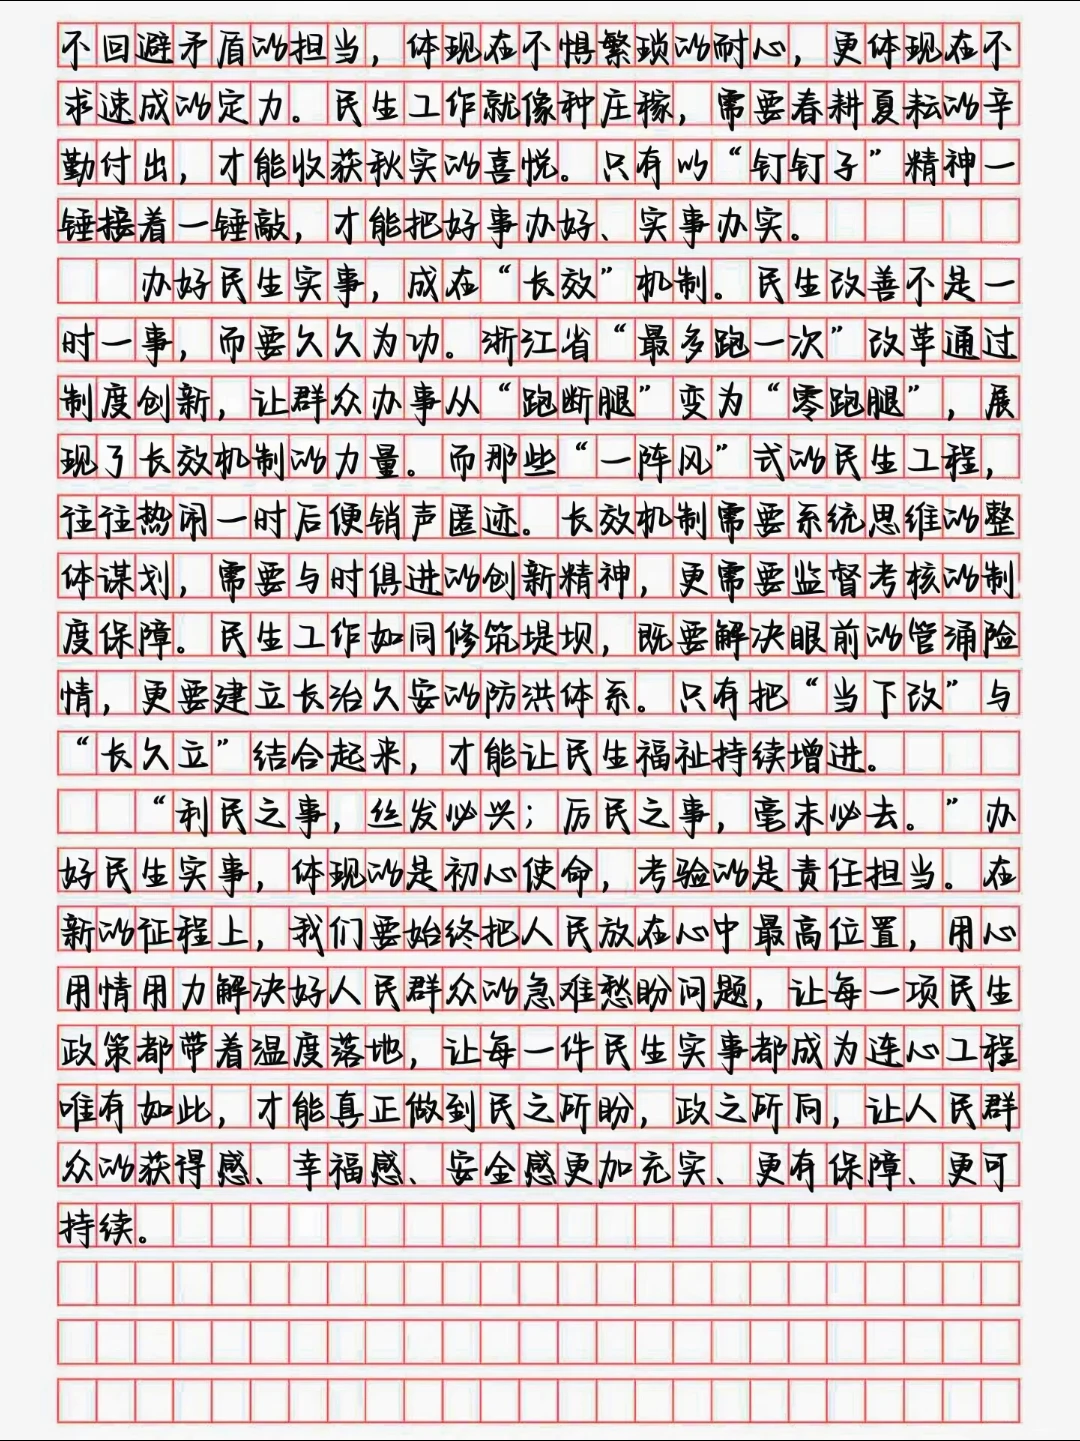 不回避矛盾的担当，体现在不惧繁琐的耐心，更体现在不
求速成的定力。民生工作就像种庄稼，需要春耕夏耘的辛
勤付出，才能收获秋实的喜悦。只有以“钉钉子”精神一
锤接着一锤敲，才能把好事办好、实事办实。
办好民生实事，成在“长效”机制。民生改善不是一
时一事，而要久久为功。浙江省“最多跑一次”改革通过
制度创新，让群众办事从“跑断腿”变为“零跑腿”，展
现了长效机制的力量。而那些“一阵风”式的民生工程，
往往热闹一时后便销声匿迹。长效机制需要系统思维的整
体谋划，需要与时俱进的创新精神，更需要监督考核的制
度保障。民生工作如同修筑堤坝，既要解决眼前的管涌险
情，更要建立长治久安的防洪体系。只有把“当下改”与
“长久立”结合起来，才能让民生福祉持续增进。
“利民之事，丝发必兴；厉民之事，毫末必去。”办
好民生实事，体现的是初心使命，考验的是责任担当。在
新的征程上，我们要始终把人民放在心中最高位置，用心
用情用力解决好人民群众的急难愁盼问题，让每一项民生
政策都带着温度落地，让每一件民生实事都成为连心工程
唯有如此，才能真正做到民之所盼，政之所向，让人民群
众的获得感、幸福感、安全感更加充实、更有保障、更可
持续。